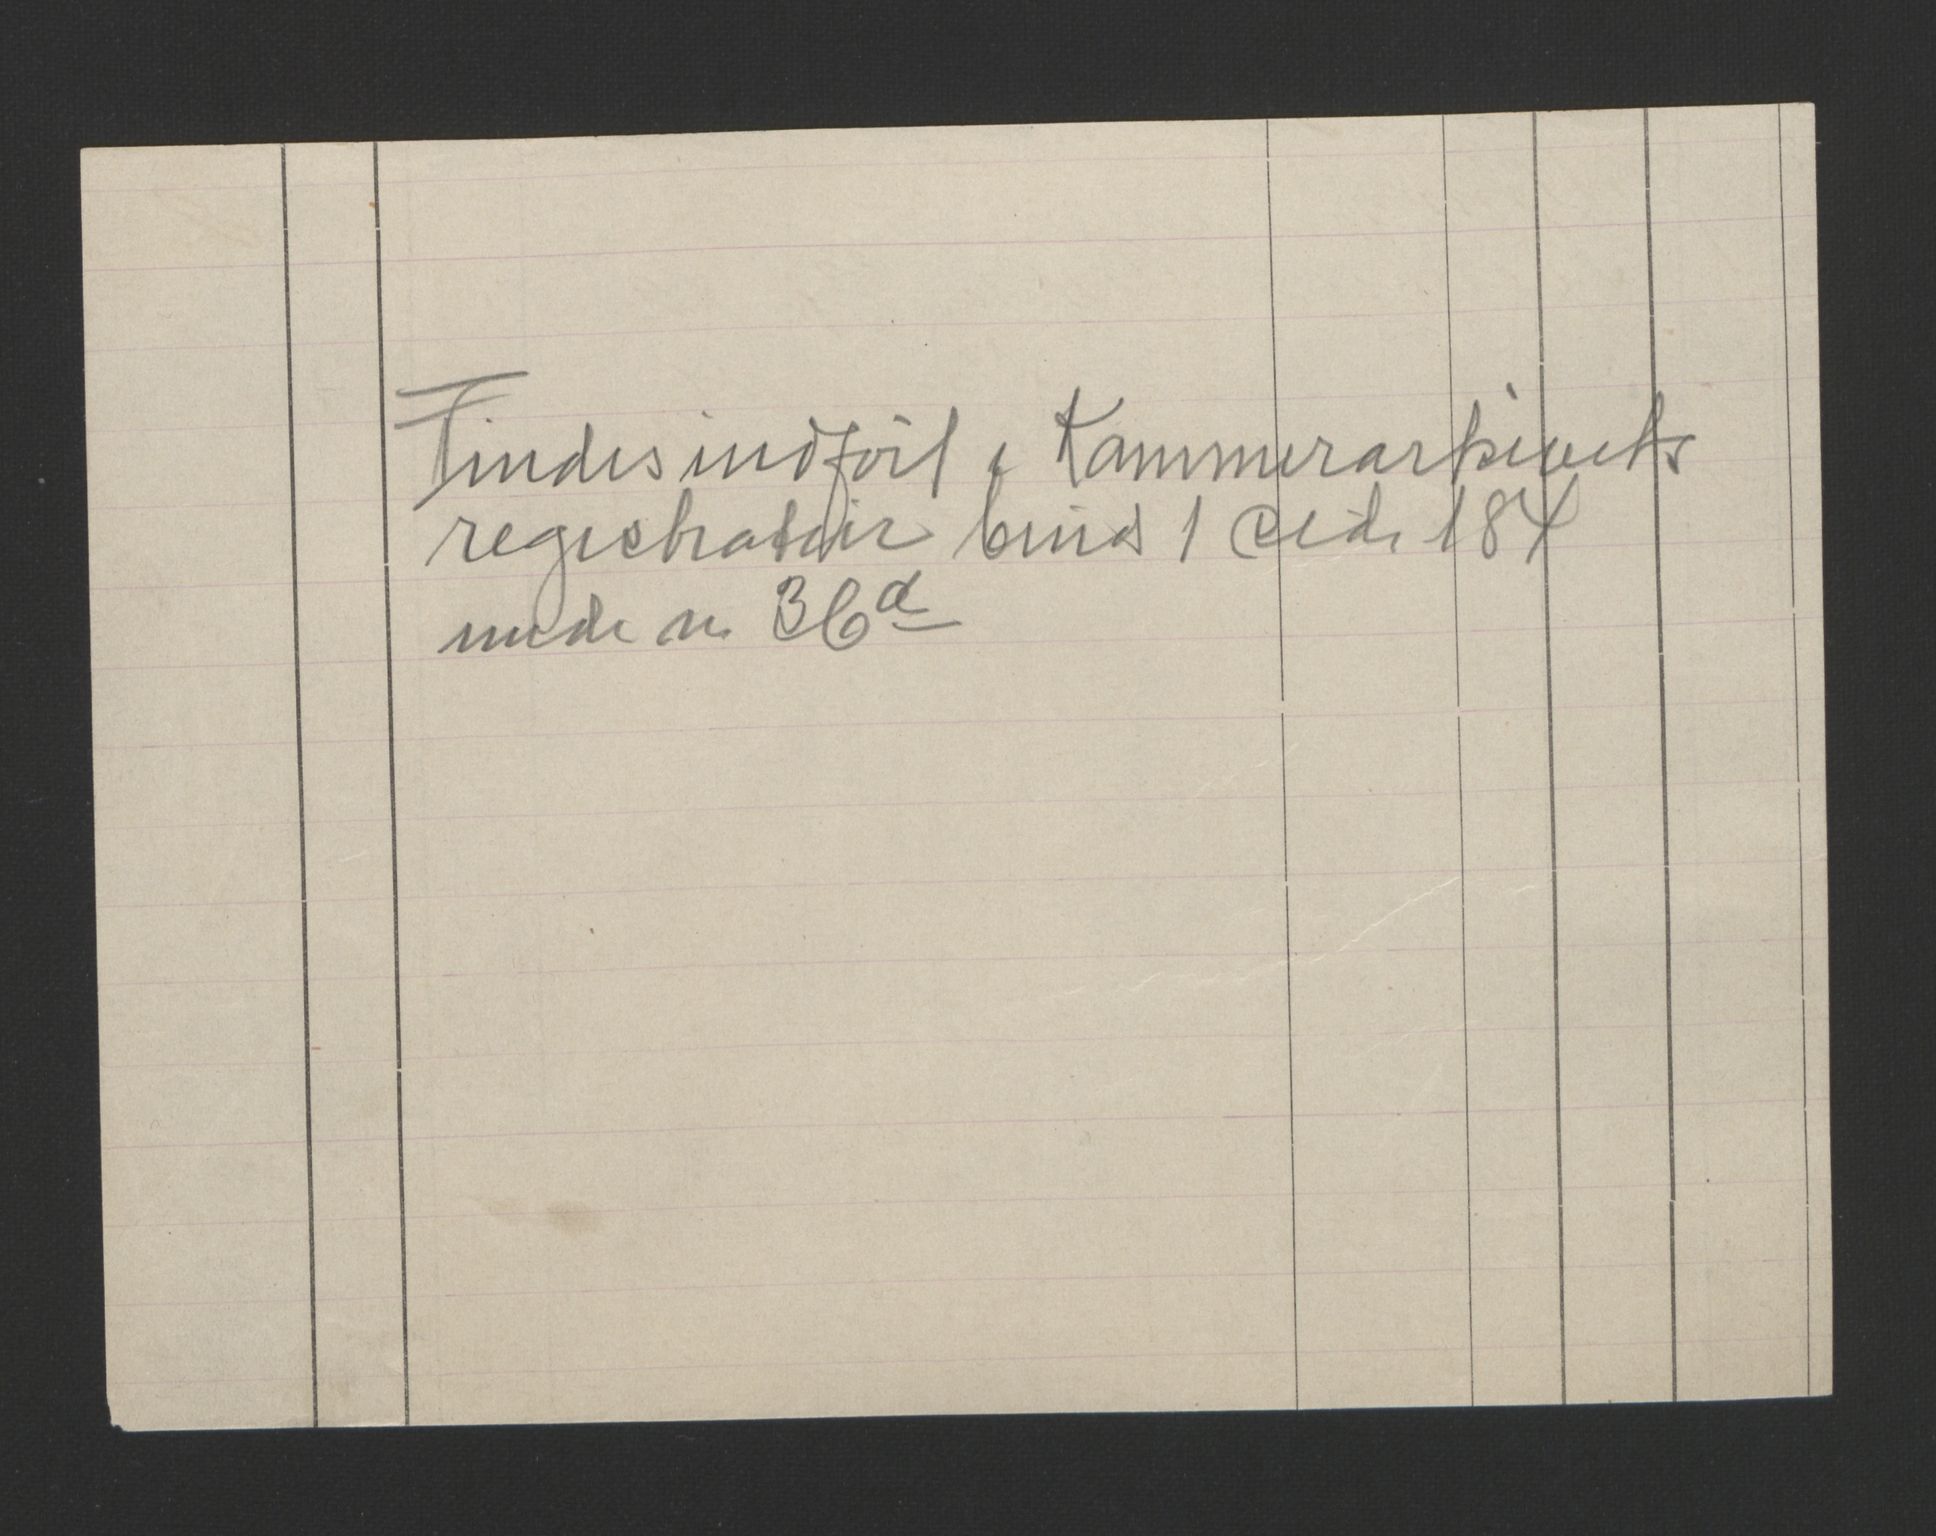 Findes indført i Kammerarkivets
registratur bind 1 side 184
under nr. 36d